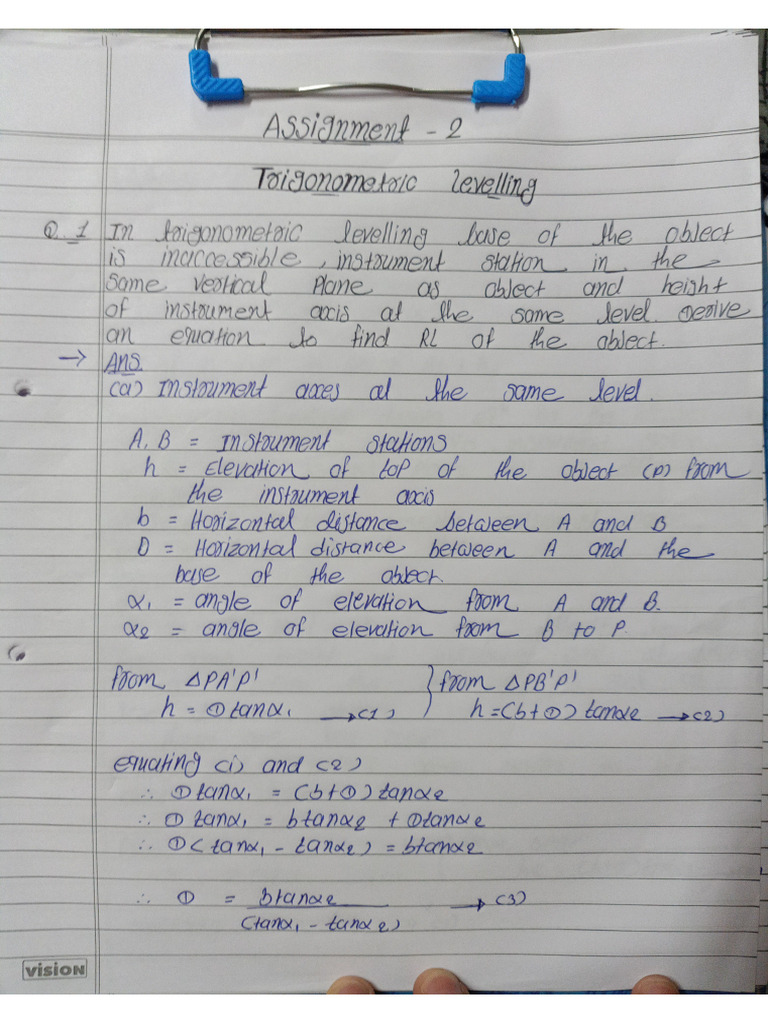 Assignment - 2
Trigonometric levelling
Q.1 In trigonometric levelling base of the object
is inaccessible, instrument station in the
same vertical plane as object and height
of instrument axis at the same level. Derive
an equation to find RL of the object.
→ Ans.
(a) Instrument axes at the same level.
A, B = Instrument stations
h = Elevation of top of the object (P) from
the instrument axis
b = Horizontal distance between A and B
D = Horizontal distance between A and the
base of the object.
α1 = angle of elevation from A and B.
α2 = angle of elevation from B to P.
from ΔPA'P' } from ΔPB'P'
h = D tanα1 → (1) h = (b+D) tanα2 → (2)
equating (1) and (2)
∴ D tanα1 = (b+D) tanα2
∴ D tanα1 = b tanα2 + D tanα2
∴ D (tanα1 - tanα2) = b tanα2
∴ D = b tanα2 → (3)
(tanα1 - tanα2)
vision